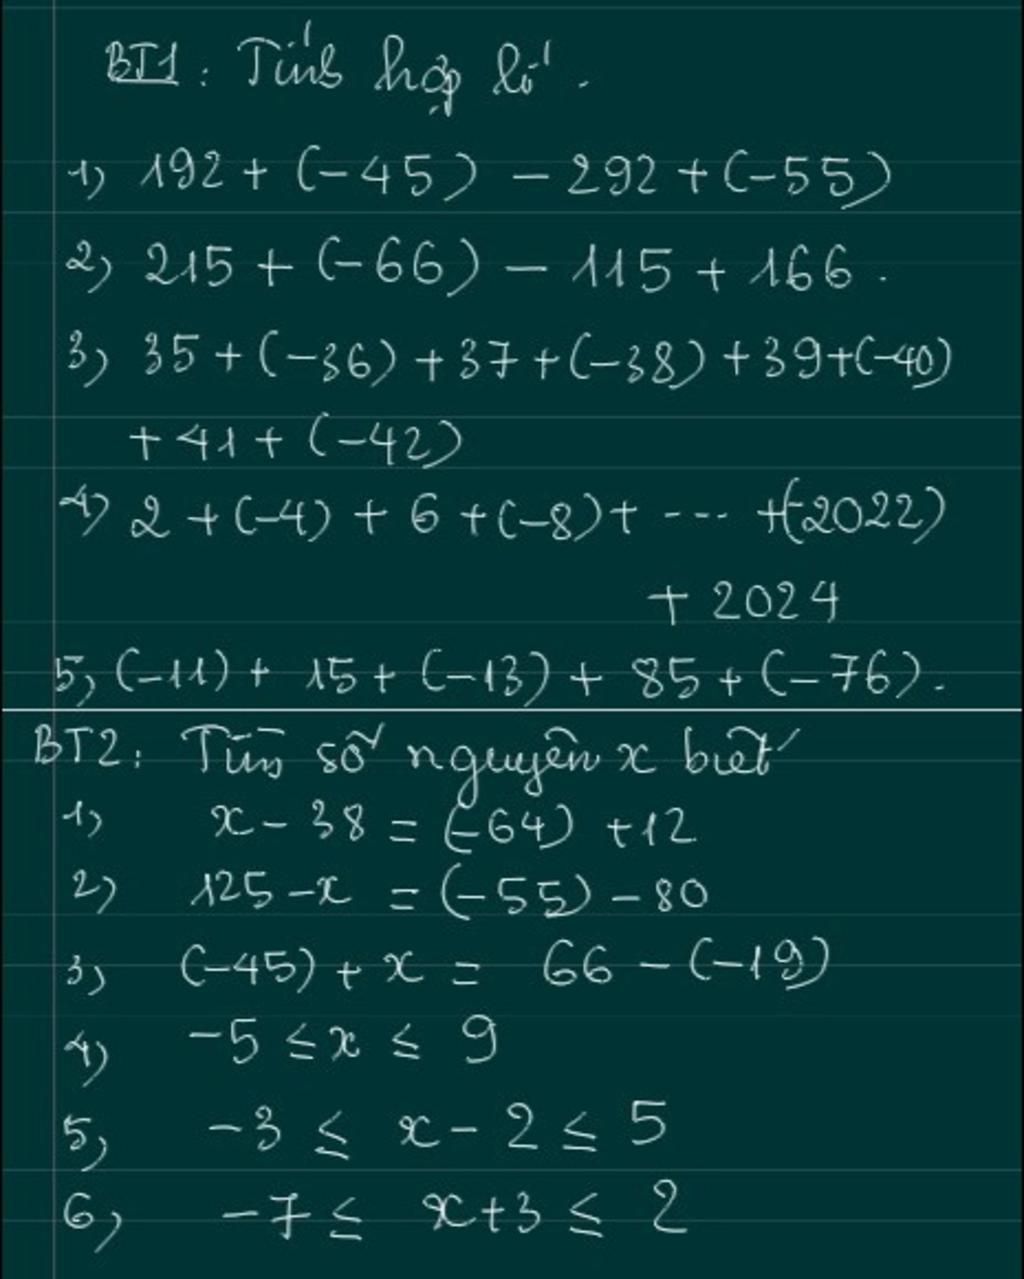 BT1: Tính hợp lí.
1) 192 + (-45) - 292 + (-55)
2) 215 + (-66) - 115 + 166.
3) 35 + (-36) + 37 + (-38) + 39 + (-40)
+ 41 + (-42)
4) 2 + (-4) + 6 + (-8) + --- + (-2022)
+ 2024
5) (-11) + 15 + (-13) + 85 + (-76).
BT2: Tìm số nguyên x biết
1) x - 38 = (-64) + 12
2) 125 - x = (-55) - 80
3) (-45) + x = 66 - (-19)
4) -5 ≤ x ≤ 9
5) -3 ≤ x - 2 ≤ 5
6) -7 ≤ x + 3 ≤ 2